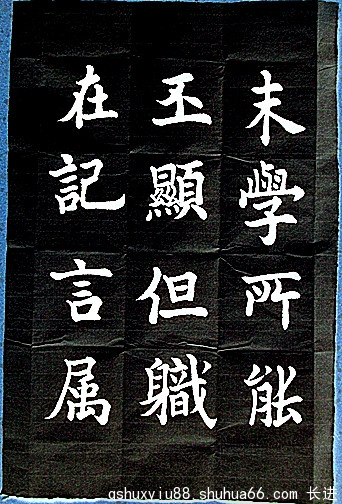 末學所能
丕顯但職
在記言属
qshuxviu88.shuhua66.com 长进